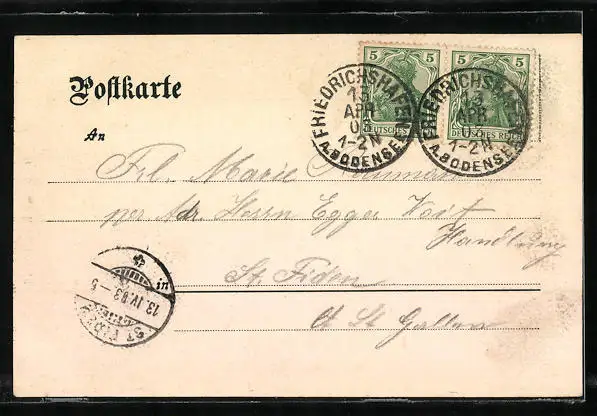 Postkarte
5 5
DEUTSCHES DEUTSCHES REICH
FRIEDRICHSHAFEN
13
APR
03
1-2N
A.BODENSEE
FRIEDRICHSHAFEN
13
APR
03
1-2N
A.BODENSEE
An
Frl. Marie
per Adr. Herrn Egger Voit
Handlung
in St. Fiden
Ct St Gallen
13. IV. 03 – 6
ST. FIDEN